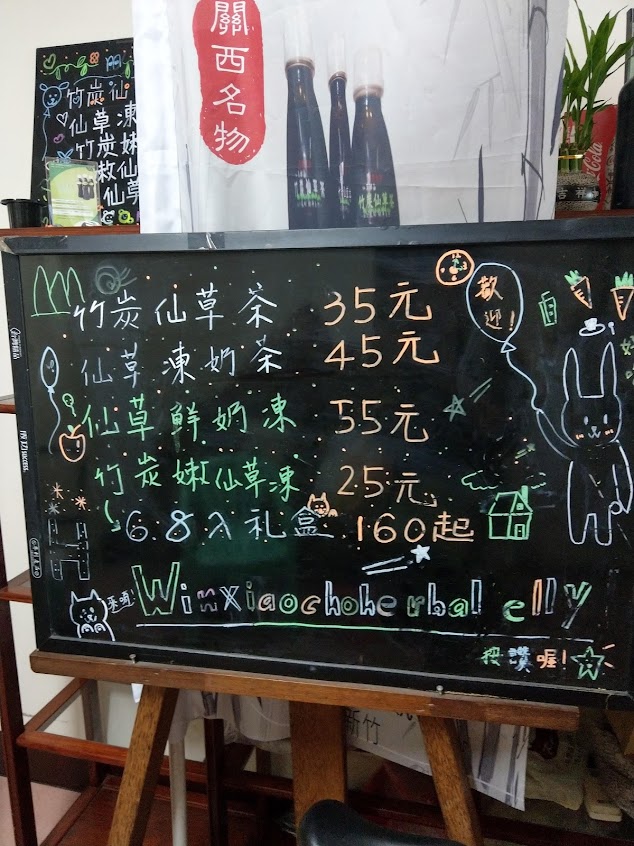 關西名物
竹炭仙
仙草凍
竹炭嫩
仙草
竹炭仙草茶
竹炭仙草茶 35元
仙草凍奶茶 45元
仙草鮮奶凍 55元
竹炭嫩仙草凍 25元
6.8入礼盒 160起
歡迎!
來唷!
Winxiaochoherbal elly
按讚喔!
新竹